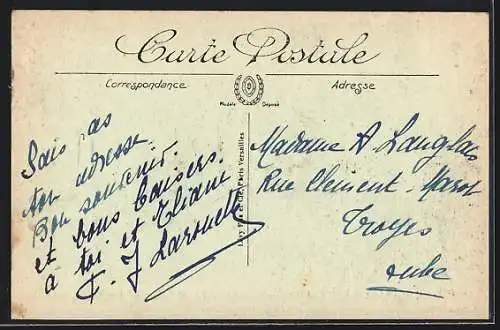 Carte Postale
Correspondance
Adresse
Modèle Déposé
Sais pas
ton adresse.
Bon souvenir.
et bons baisers.
à toi et Eliane
J. Larouette
Madame A. Langlais
Rue Clement-Marot
Troyes
Aube
Paris Versailles